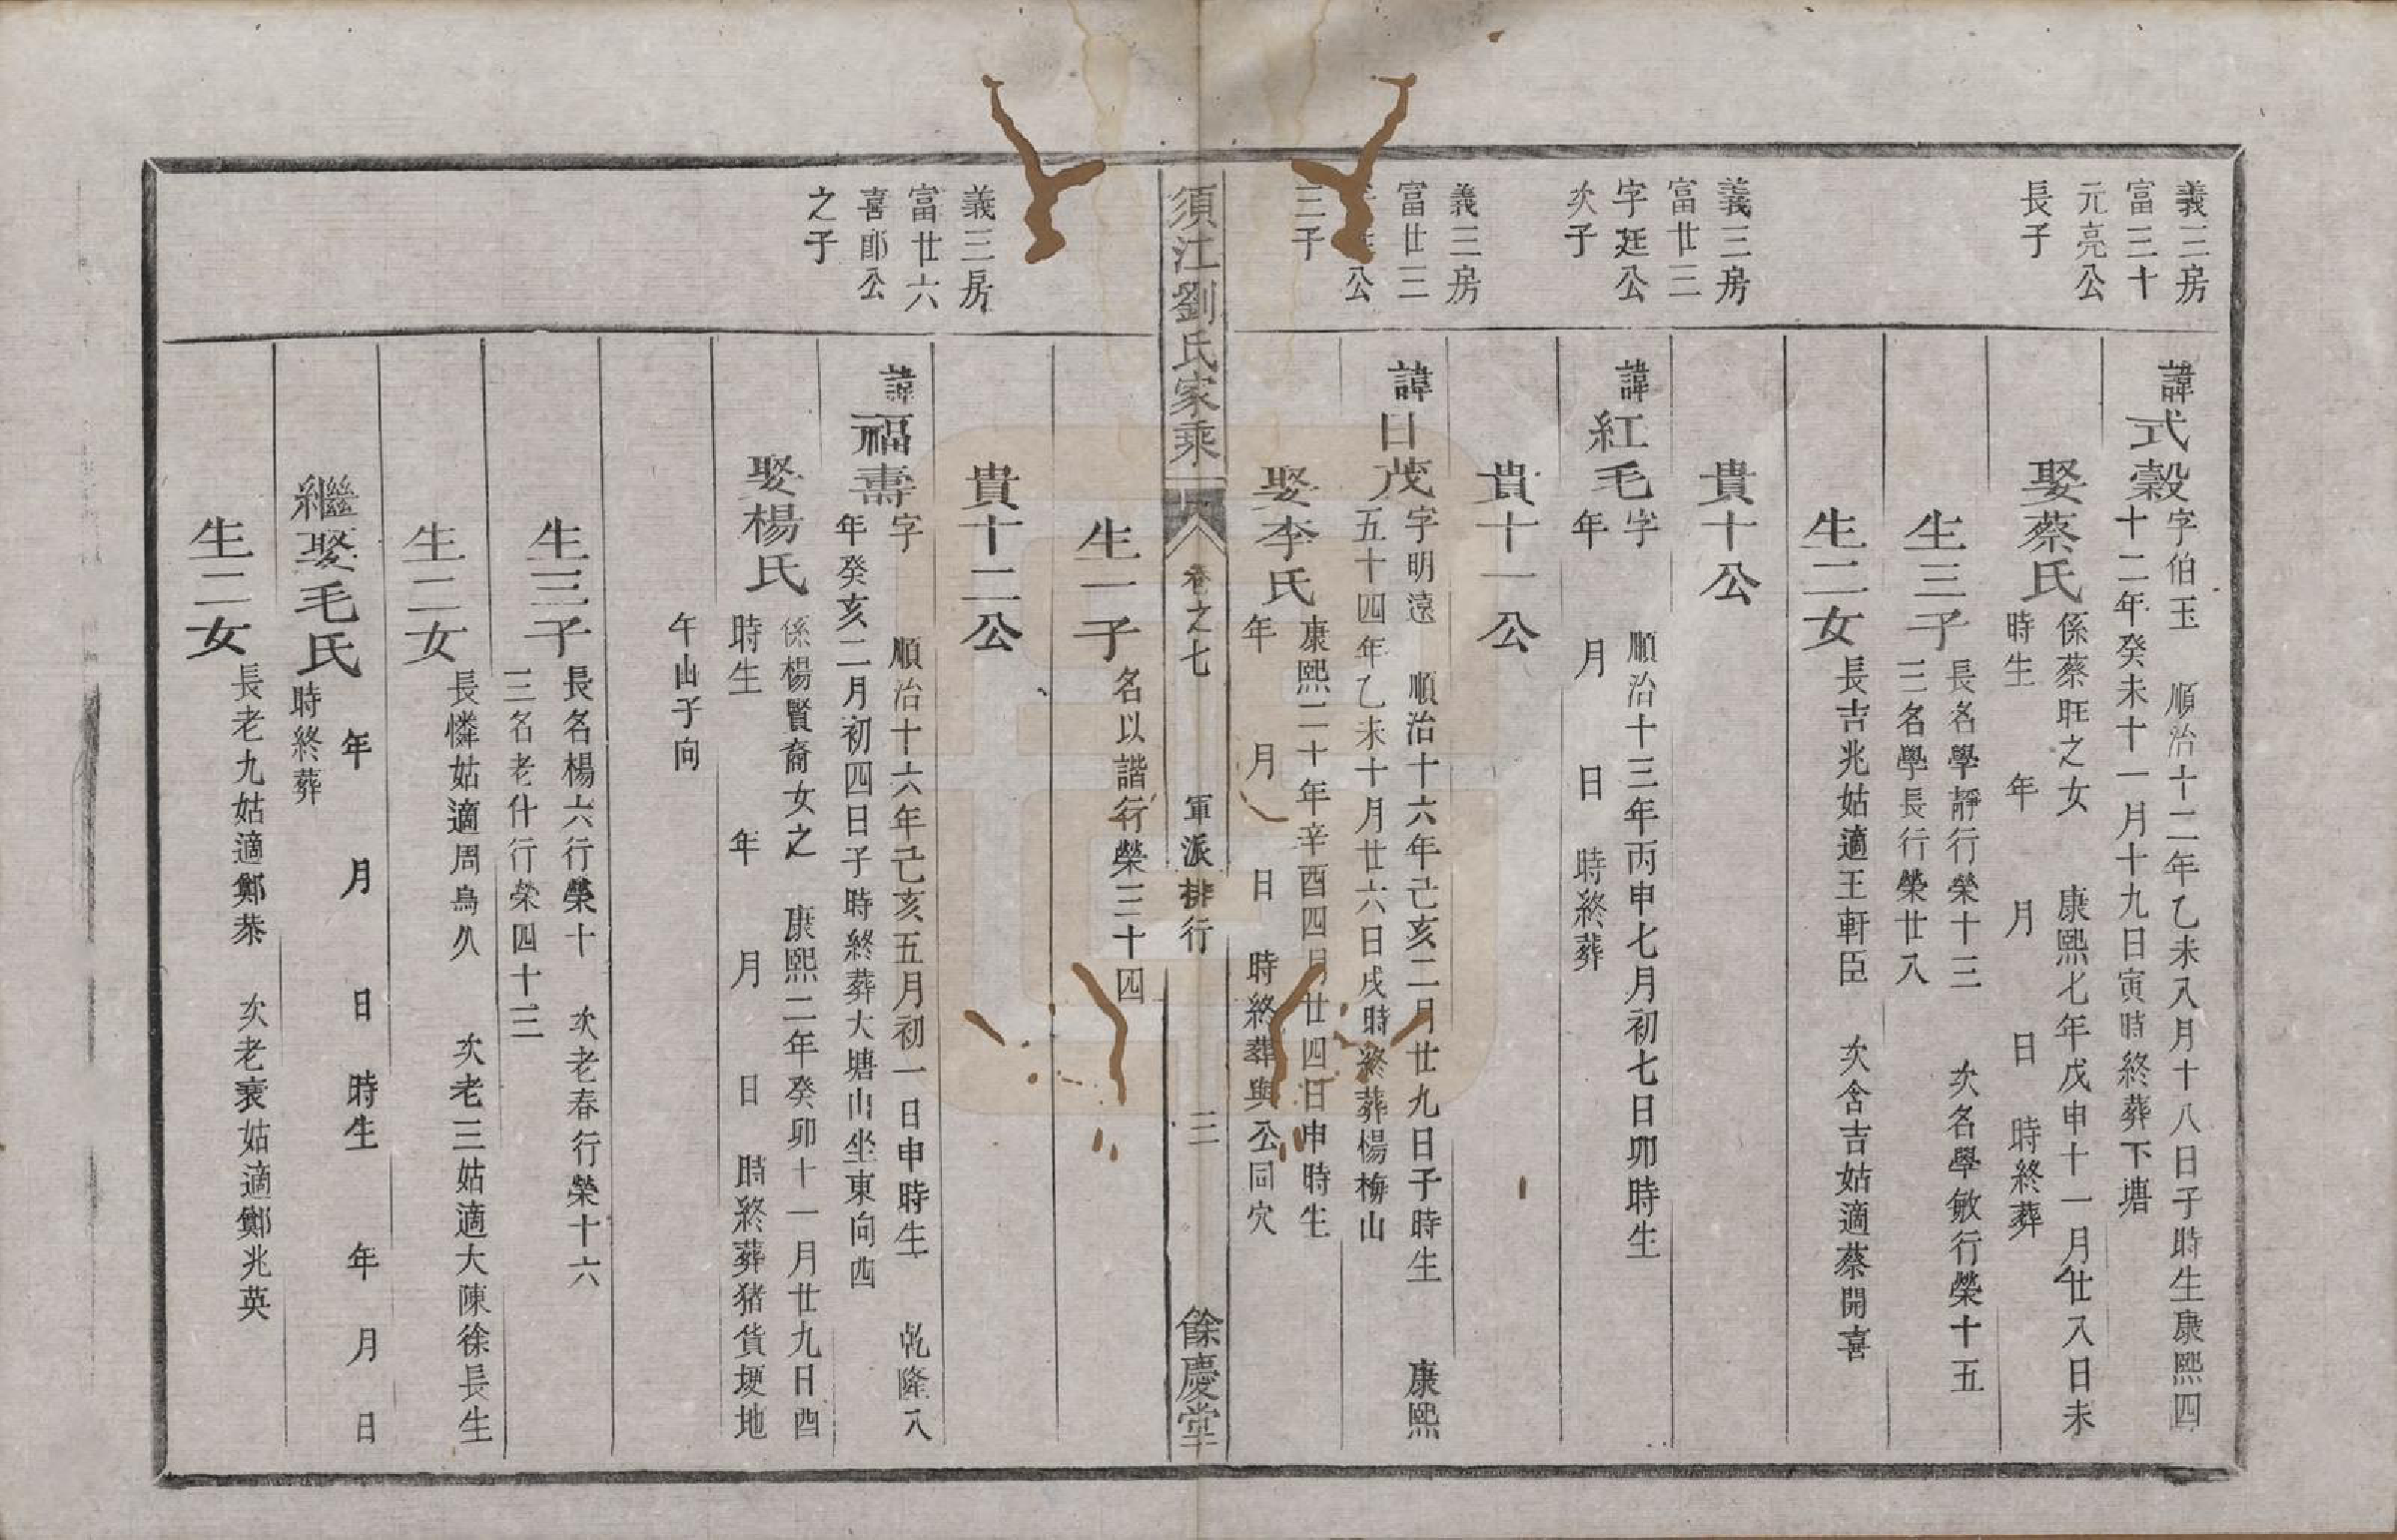 義三房
富三十
元亮公
長子
諱式穀字伯玉 順治十二年乙未八月十八日子時生康熙四
十二年癸未十一月十九日寅時終葬下塘
娶蔡氏係蔡旺之女 康熙七年戊申十一月廿八日未
時生 年 月 日 時終葬
生三子長名學靜行榮十三 次名學敏行榮十五
三名學長行榮廿八
生二女長吉兆姑適王軒臣 次含吉姑適蔡開喜
義三房
富廿三
字廷公
次子
貴十公
諱紅毛字 順治十三年丙申七月初七日卯時生
年 月 日 時終葬
義三房
富廿三
公
三子
貴十一公
諱日茂字明遠 順治十六年己亥二月廿九日子時生 康熙
五十四年乙未十月廿六日戌時終葬楊梅山
娶李氏康熙二十年辛酉四月廿四日申時生
年 月 日 時終葬與公同穴
須江劉氏家乘 卷之七 軍派排行 三 餘慶堂
生一子名以諧行榮三十四
義三房
富廿六
喜郎公
之子
貴十二公
諱福壽字 順治十六年己亥五月初一日申時生 乾隆八
年癸亥二月初四日子時終葬大塘山坐東向西
娶楊氏係楊賢裔女之 康熙二年癸卯十一月廿九日酉
時生 年 月 日 時終葬猪貨埂地
午山子向
生三子長名楊六行榮十 次老春行榮十六
三名老什行榮四十三
生二女長憐姑適周烏久 次老三姑適大陳徐長生
繼娶毛氏 年 月 日 時生 年 月 日
時終葬
生二女長老九姑適鄭恭 次老衰姑適鄭兆英